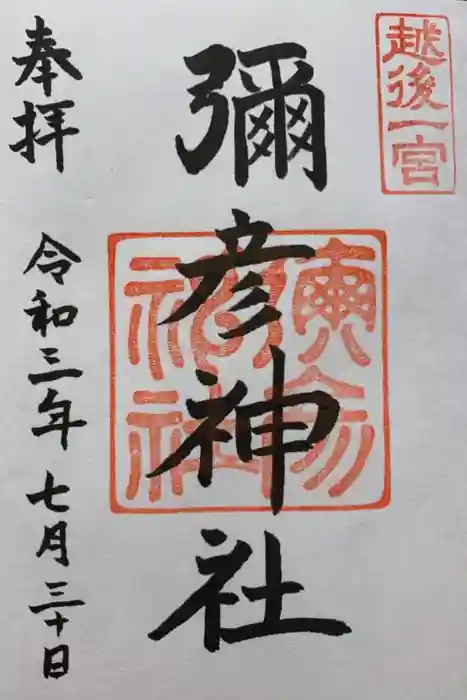 越後一宮
彌彦神社
奉拝
令和三年七月三十日